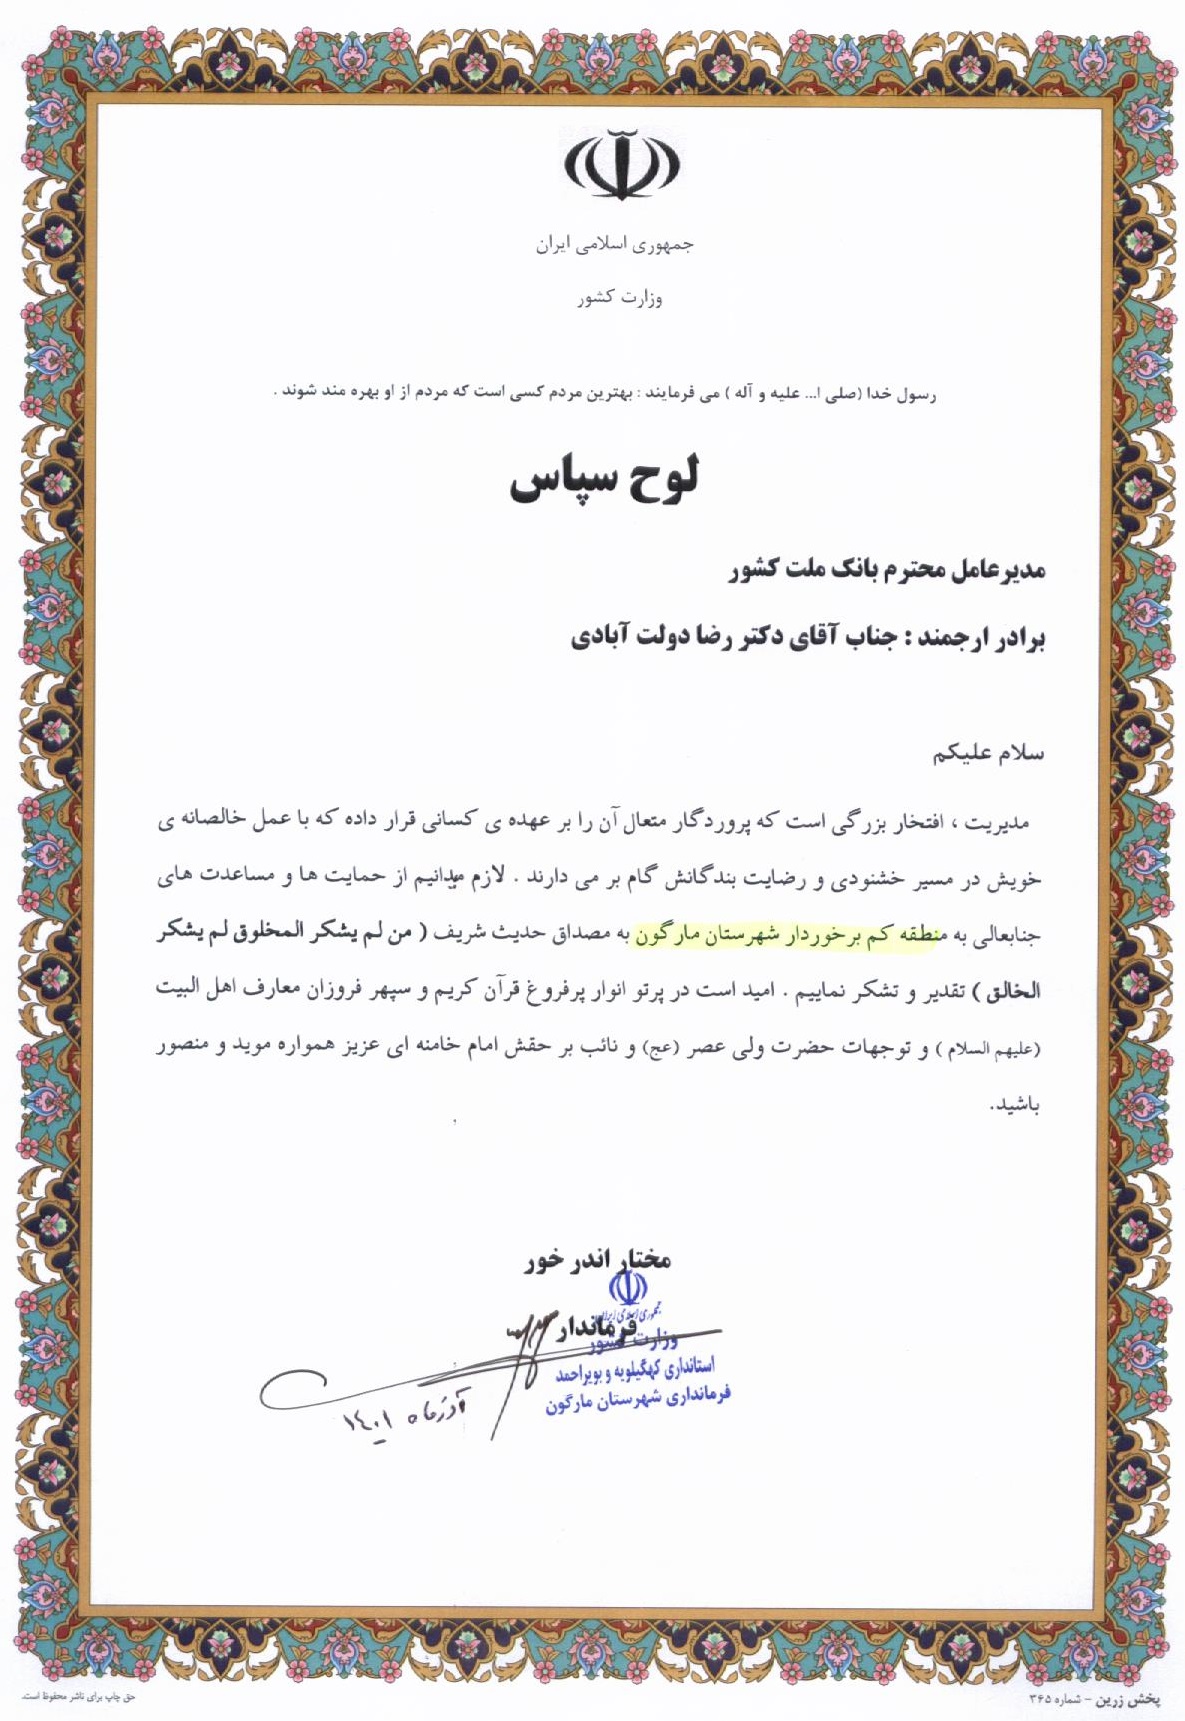 جمهوری اسلامی ایران
وزارت کشور
رسول خدا (صلی ا... علیه و آله ) می فرمایند : بهترین مردم کسی است که مردم از او بهره مند شوند .
لوح سپاس
مدیرعامل محترم بانک ملت کشور
برادر ارجمند : جناب آقای دکتر رضا دولت آبادی
سلام علیکم
مدیریت ، افتخار بزرگی است که پروردگار متعال آن را بر عهده ی کسانی قرار داده که با عمل خالصانه ی
خویش در مسیر خشنودی و رضایت بندگانش گام بر می دارند . لازم میدانیم از حمایت ها و مساعدت های
جنابعالی به منطقه کم برخوردار شهرستان مارگون به مصداق حدیث شریف ( من لم یشکر المخلوق لم یشکر
الخالق ) تقدیر و تشکر نماییم . امید است در پرتو انوار پرفروغ قرآن کریم و سپهر فروزان معارف اهل البیت
(علیهم السلام ) و توجهات حضرت ولی عصر (عج) و نائب بر حقش امام خامنه ای عزیز همواره موید و منصور
باشید.
مختار اندر خور
جمهوری اسلامی ایران
فرماندار
وزارت کشور
استانداری کهگیلویه و بویراحمد
فرمانداری شهرستان مارگون
آذرماه ۱۴۰۱
پخش زرین - شماره ۳۶۵
حق چاپ برای ناشر محفوظ است.